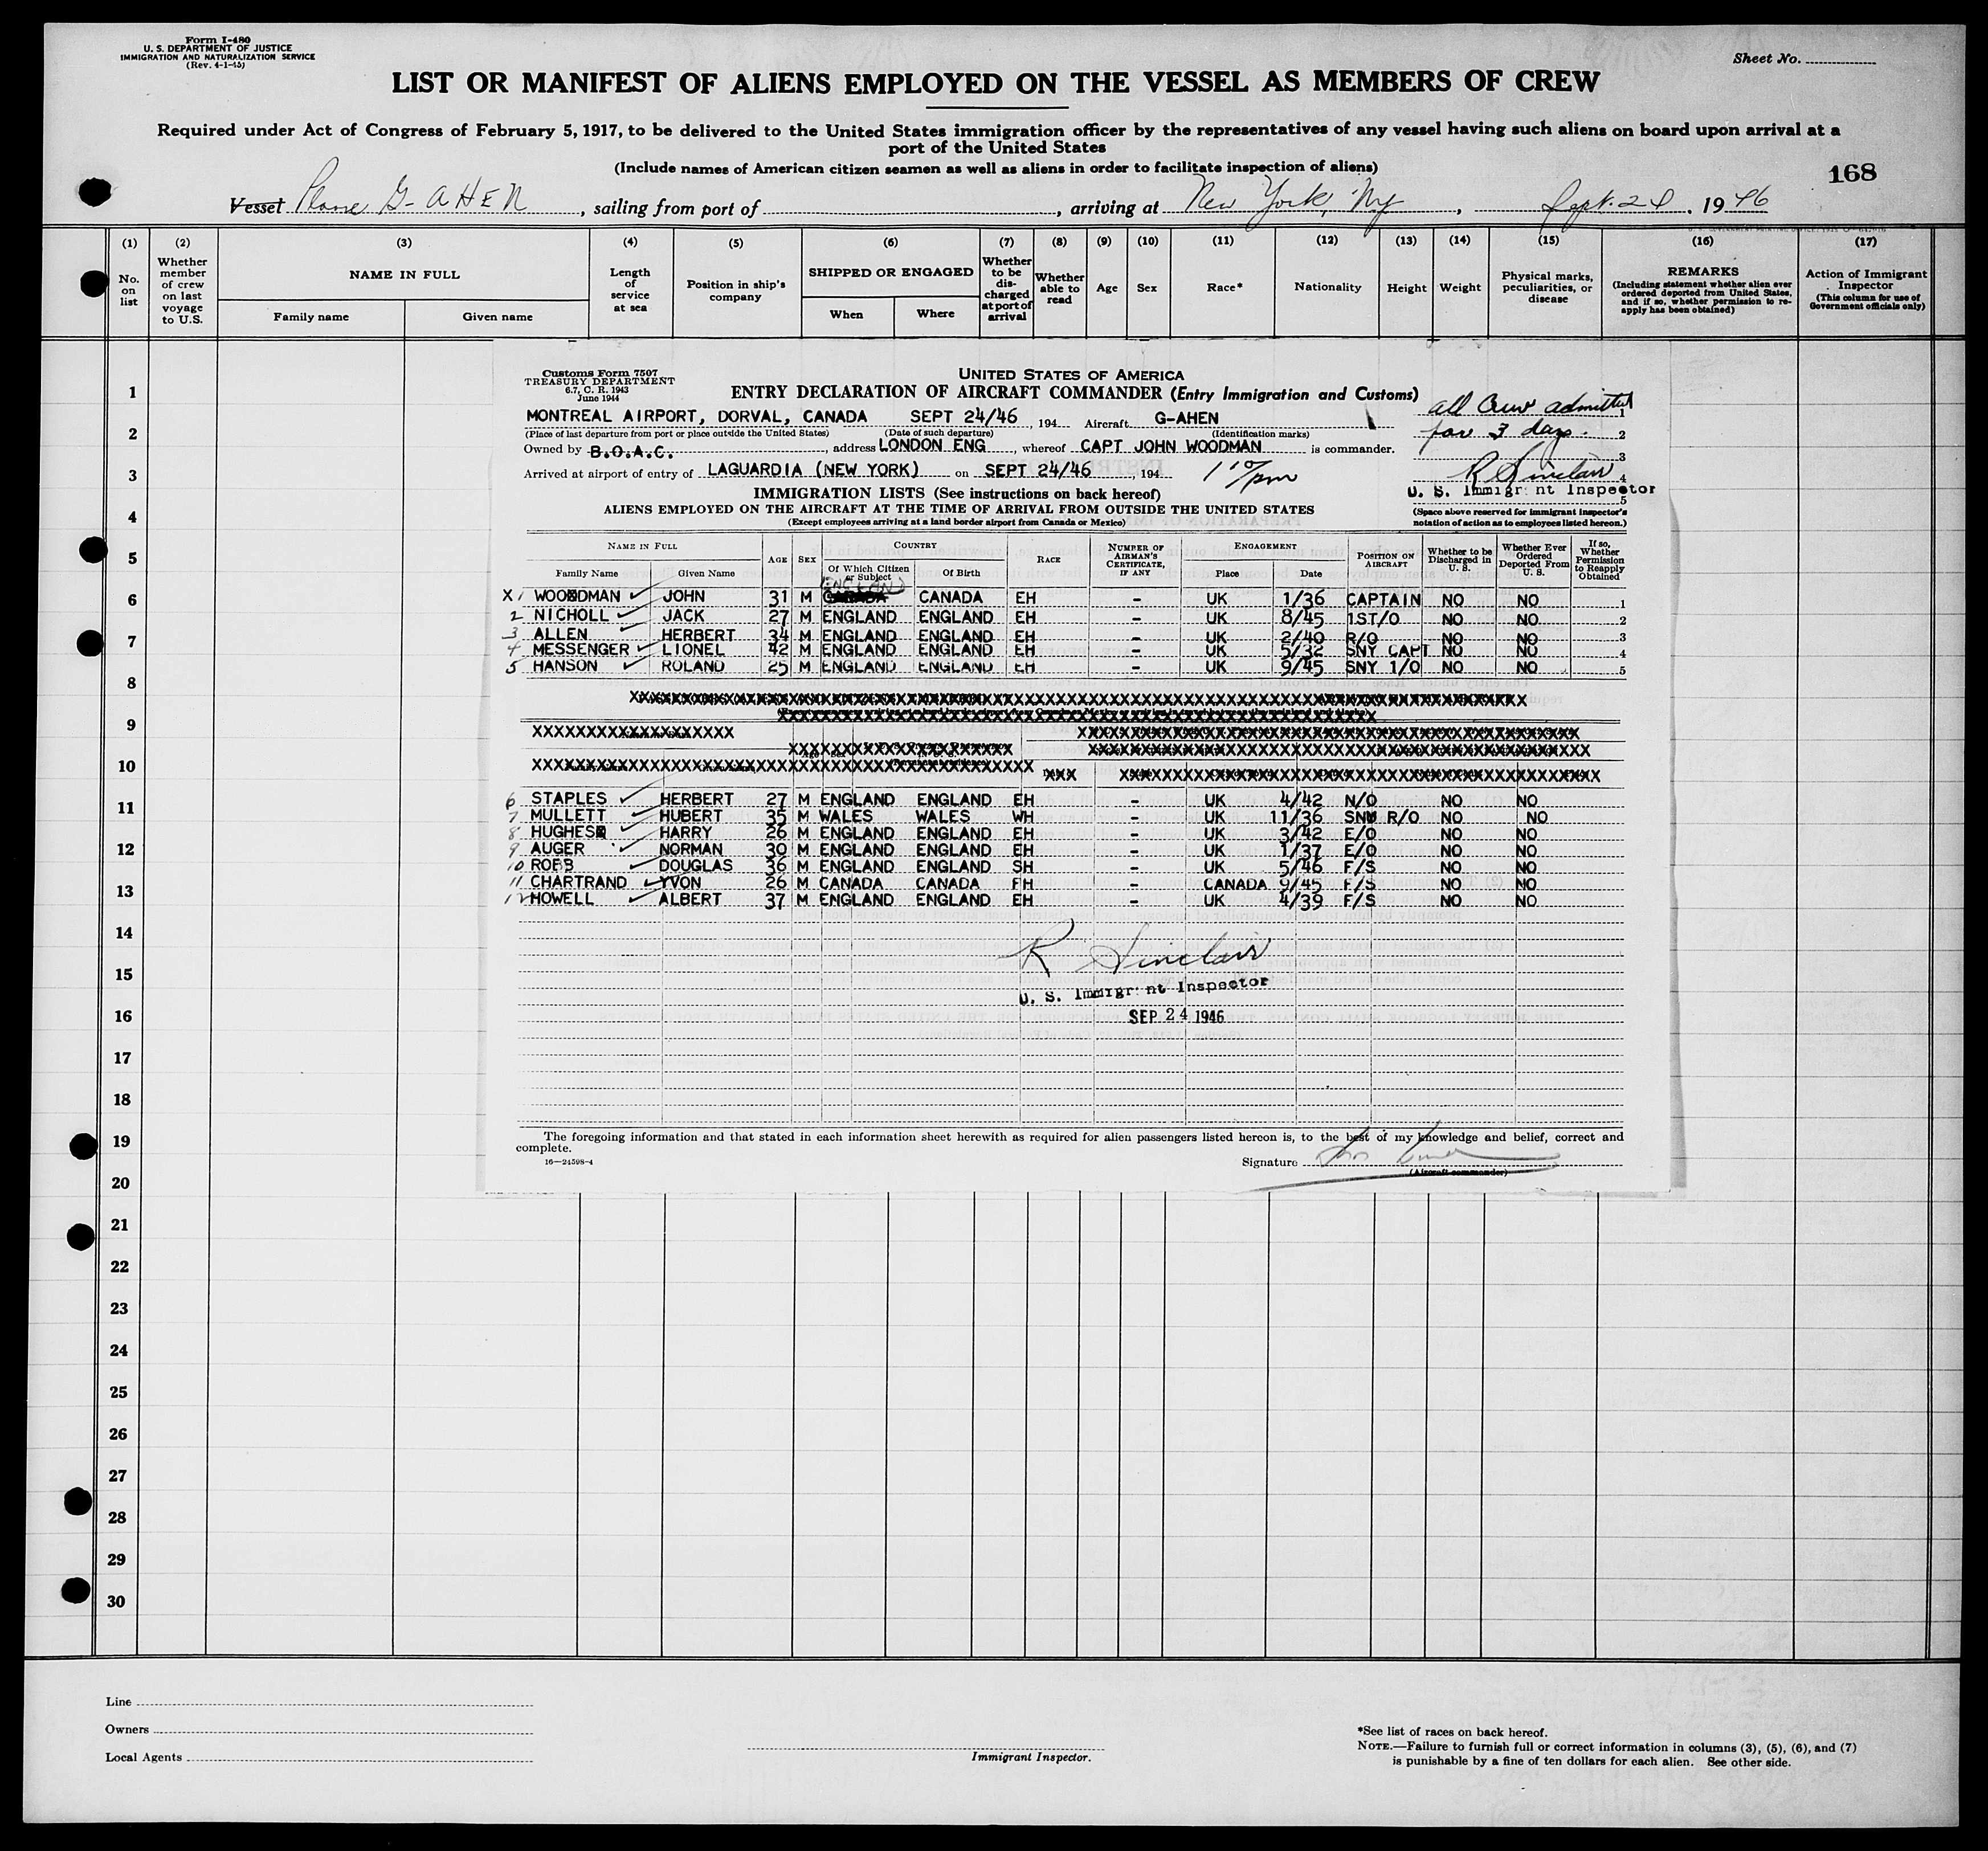 Form I-480
U. S. DEPARTMENT OF JUSTICE
IMMIGRATION AND NATURALIZATION SERVICE
(Rev. 4-1-45)
Sheet No.
LIST OR MANIFEST OF ALIENS EMPLOYED ON THE VESSEL AS MEMBERS OF CREW
Required under Act of Congress of February 5, 1917, to be delivered to the United States immigration officer by the representatives of any vessel having such aliens on board upon arrival at a
port of the United States
(Include names of American citizen seamen as well as aliens in order to facilitate inspection of aliens)
168
Vessel Plane G-AHEN, sailing from port of , arriving at New York, Ny, Sept. 24, 1946
(1) (2) (3) (4) (5) (6) (7) (8) (9) (10) (11) (12) (13) (14) (15) (16) (17)
No. on list
Whether member of crew on last voyage to U.S.
NAME IN FULL
Family name Given name
Length of service at sea
Position in ship's company
SHIPPED OR ENGAGED
When Where
Whether to be discharged at port of arrival
Whether able to read
Age
Sex
Race*
Nationality
Height
Weight
Physical marks, peculiarities, or disease
REMARKS
(Including statement whether alien ever ordered deported from United States, and if so, whether permission to reapply has been obtained)
Action of Immigrant Inspector
(This column for use of Government officials only)
Customs Form 7507
TREASURY DEPARTMENT
6.7, C. R. 1943
June 1944
UNITED STATES OF AMERICA
ENTRY DECLARATION OF AIRCRAFT COMMANDER (Entry Immigration and Customs)
MONTREAL AIRPORT, DORVAL, CANADA SEPT 24/46, 194 Aircraft G-AHEN
(Place of last departure from port or place outside the United States) (Date of such departure) (Identification marks)
Owned by B.O.A.C., address LONDON ENG, whereof CAPT JOHN WOODMAN is commander.
Arrived at airport of entry of LAGUARDIA (NEW YORK) on SEPT 24/46, 194 1 10/pm
all Crew admitted 1
for 3 days. 2
3
R Sinclair 4
U. S. Immigrant Inspector
5
(Space above reserved for immigrant inspector's
notation of action as to employees listed hereon.)
IMMIGRATION LISTS (See instructions on back hereof)
ALIENS EMPLOYED ON THE AIRCRAFT AT THE TIME OF ARRIVAL FROM OUTSIDE THE UNITED STATES
(Except employees arriving at a land border airport from Canada or Mexico)
NAME IN FULL
Family Name Given Name
AGE
SEX
COUNTRY
Of Which Citizen or Subject Of Birth
RACE
NUMBER OF AIRMAN'S CERTIFICATE, IF ANY
ENGAGEMENT
Place Date
POSITION ON AIRCRAFT
Whether to be Discharged in U. S.
Whether Ever Ordered Deported From U. S.
If so, Whether Permission to Reapply Obtained
ENGLAND
X 1 WOODMAN JOHN 31 M CANADA CANADA EH - UK 1/36 CAPTAIN NO NO 1
2 NICHOLL JACK 27 M ENGLAND ENGLAND EH - UK 8/45 1ST/O NO NO 2
3 ALLEN HERBERT 34 M ENGLAND ENGLAND EH - UK 2/40 R/O NO NO 3
4 MESSENGER LIONEL 42 M ENGLAND ENGLAND EH - UK 5/32 SNY CAPT NO NO 4
5 HANSON ROLAND 25 M ENGLAND ENGLAND EH - UK 9/45 SNY 1/O NO NO 5
6 STAPLES HERBERT 27 M ENGLAND ENGLAND EH - UK 4/42 N/O NO NO
7 MULLETT HUBERT 35 M WALES WALES WH - UK 11/36 SNY R/O NO NO
8 HUGHES HARRY 26 M ENGLAND ENGLAND EH - UK 3/42 E/O NO NO
9 AUGER NORMAN 30 M ENGLAND ENGLAND EH - UK 1/37 E/O NO NO
10 ROBB DOUGLAS 36 M ENGLAND ENGLAND SH - UK 5/46 F/S NO NO
11 CHARTRAND YVON 26 M CANADA CANADA FH - CANADA 9/45 F/S NO NO
12 HOWELL ALBERT 37 M ENGLAND ENGLAND EH - UK 4/39 F/S NO NO
R Sinclair
U. S. Immigrant Inspector
SEP 24 1946
The foregoing information and that stated in each information sheet herewith as required for alien passengers listed hereon is, to the best of my knowledge and belief, correct and
complete.
16—24598-4
Signature
(Aircraft commander)
1
2
3
4
5
6
7
8
9
10
11
12
13
14
15
16
17
18
19
20
21
22
23
24
25
26
27
28
29
30
Line
Owners
Local Agents
Immigrant Inspector.
*See list of races on back hereof.
NOTE.—Failure to furnish full or correct information in columns (3), (5), (6), and (7)
is punishable by a fine of ten dollars for each alien. See other side.